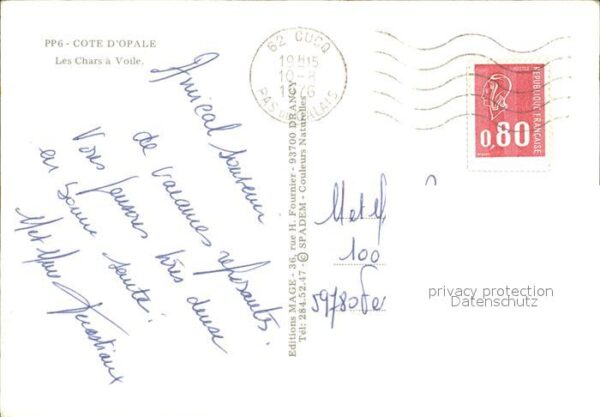 PP6 - COTE D'OPALE
Les Chars à Voile.
62 CUCQ
19H15
10 - 
PAS DE CALAIS
REPUBLIQUE FRANÇAISE
0,80
Amical souvenir
de vacances reposantes.
Vous pensons très
en bonne santé.
M et Mme
Editions MAGE - 36, rue H. Fournier - 93700 DRANCY
Tél: 284.52.47 - © SPADEM - Couleurs Naturelles
M et M
100
59780
privacy protection
Datenschutz